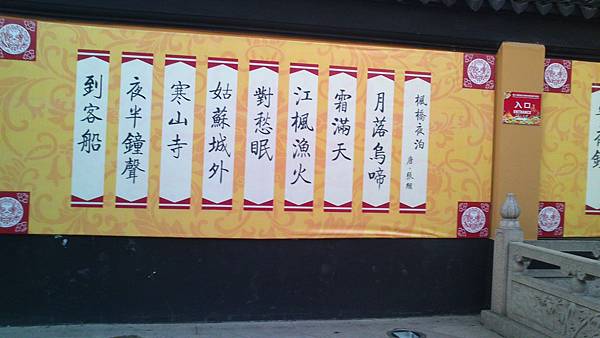 楓橋夜泊
唐·張繼
月落烏啼
霜滿天
江楓漁火
對愁眠
姑蘇城外
寒山寺
夜半鐘聲
到客船
入口
ENTRANCE